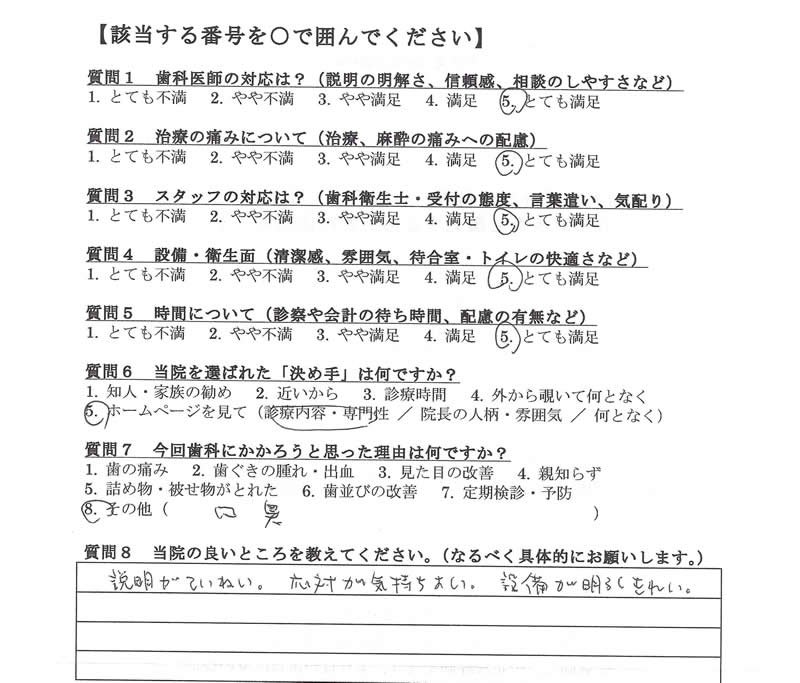 【該当する番号を〇で囲んでください】
質問１　歯科医師の対応は？（説明の明解さ、信頼感、相談のしやすさなど）
1. とても不満　2. やや不満　3. やや満足　4. 満足　5. とても満足
質問２　治療の痛みについて（治療、麻酔の痛みへの配慮）
1. とても不満　2. やや不満　3. やや満足　4. 満足　5. とても満足
質問３　スタッフの対応は？（歯科衛生士・受付の態度、言葉遣い、気配り）
1. とても不満　2. やや不満　3. やや満足　4. 満足　5. とても満足
質問４　設備・衛生面（清潔感、雰囲気、待合室・トイレの快適さなど）
1. とても不満　2. やや不満　3. やや満足　4. 満足　5. とても満足
質問５　時間について（診察や会計の待ち時間、配慮の有無など）
1. とても不満　2. やや不満　3. やや満足　4. 満足　5. とても満足
質問６　当院を選ばれた「決め手」は何ですか？
1. 知人・家族の勧め　2. 近いから　3. 診療時間　4. 外から覗いて何となく
5. ホームページを見て（診療内容・専門性 ／ 院長の人柄・雰囲気 ／ 何となく）
質問７　今回歯科にかかろうと思った理由は何ですか？
1. 歯の痛み　2. 歯ぐきの腫れ・出血　3. 見た目の改善　4. 親知らず
5. 詰め物・被せ物がとれた　6. 歯並びの改善　7. 定期検診・予防
8. その他（　口臭　）
質問８　当院の良いところを教えてください。（なるべく具体的にお願いします。）
説明がていねい。応対が気持ちよい。設備が明るくきれい。